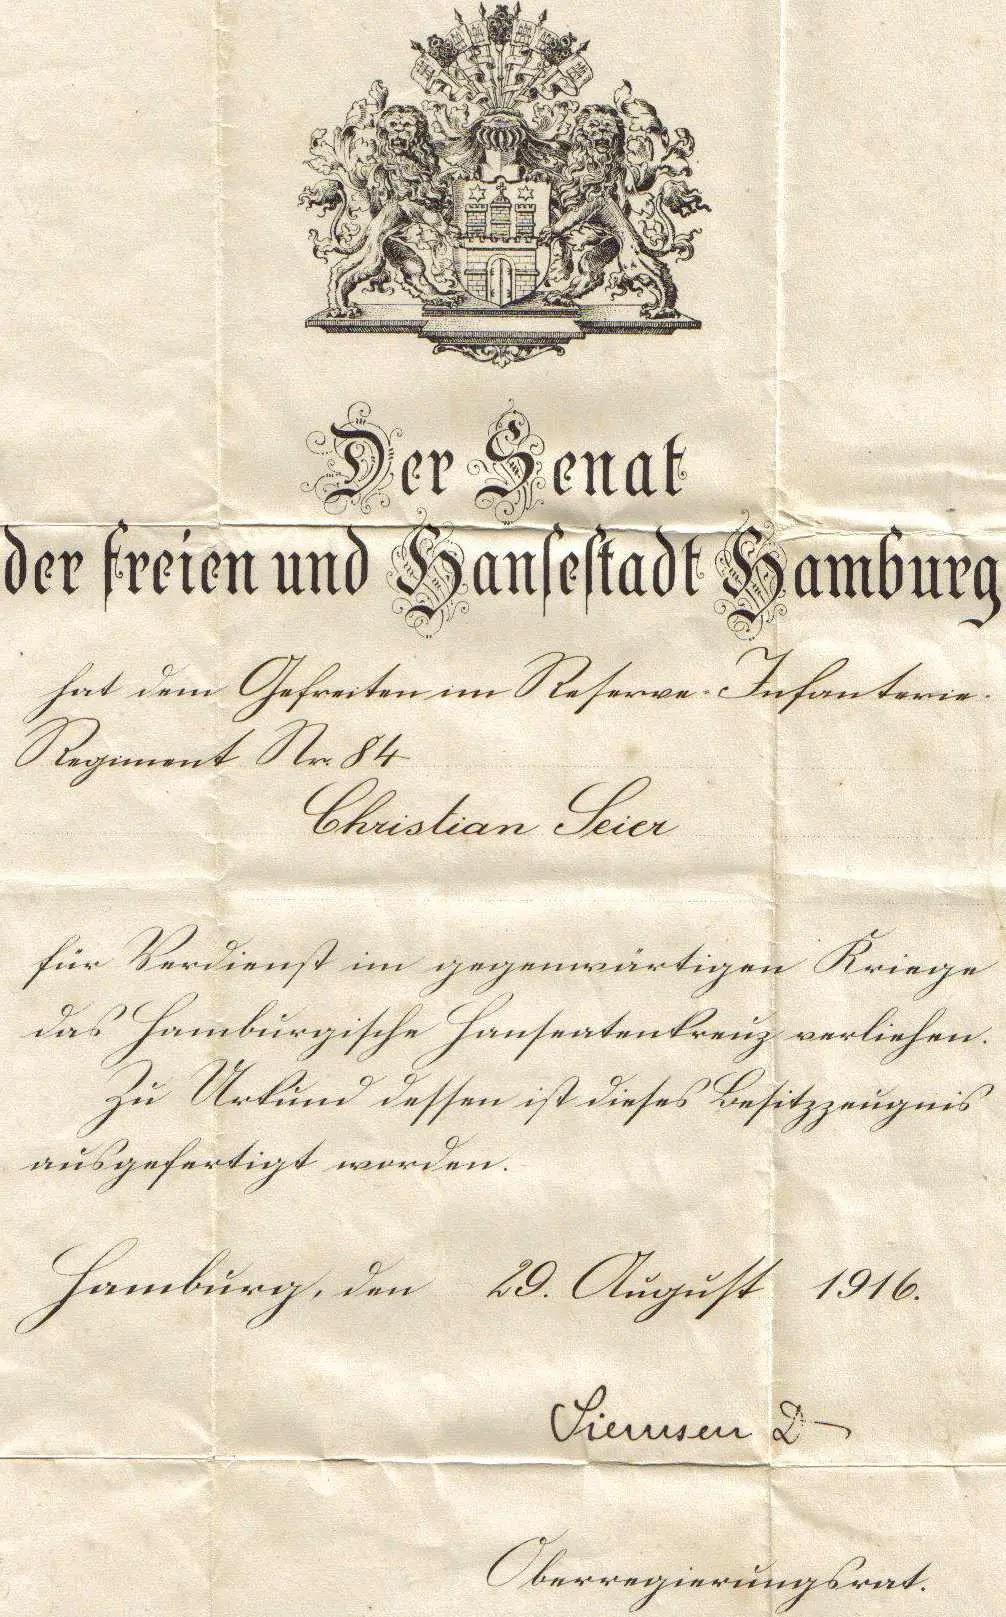 Der Senat
der freien und Hansestadt Hamburg
hat dem Gefreiten im Reserve-Infanterie-
Regiment Nr. 84
Christian Seier
für Verdienst im gegenwärtigen Kriege
das Hamburgische Hanseatenkreuz verliehen.
Zu Urkund dessen ist dieses Besitzzeugnis
ausgefertigt worden.
Hamburg, den 29. August 1916.
Siemsen D
Oberregierungsrat.